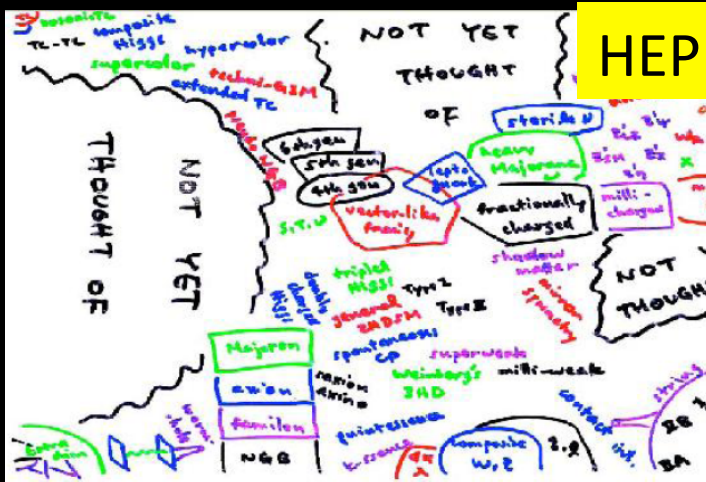 HEP
bosonic TC
TC-TC
composite
Higgs
hypercolor
supercolor
techni-GIM
extended TC
NOT YET
THOUGHT
OF
NOT YET
THOUGHT OF
6th gen
5th gen
4th gen
lepto
quark
sterile ν
heavy
Majorana
vector-like
family
fractionally
charged
milli-
charged
S,T,U
shadow
matter
mirror
symmetry
NOT Y
THOUGH
triplet
Higgs
double
charged
Higgs
general
2HDSM
Type I
Type II
spontaneous
CP
superweak
milli-weak
Weinberg's
3HD
Majoron
axion
familon
NGB
saxion
axino
quintessence
k-essence
worm
hole
extra
dim
composite
W, Z
contact
int.
string